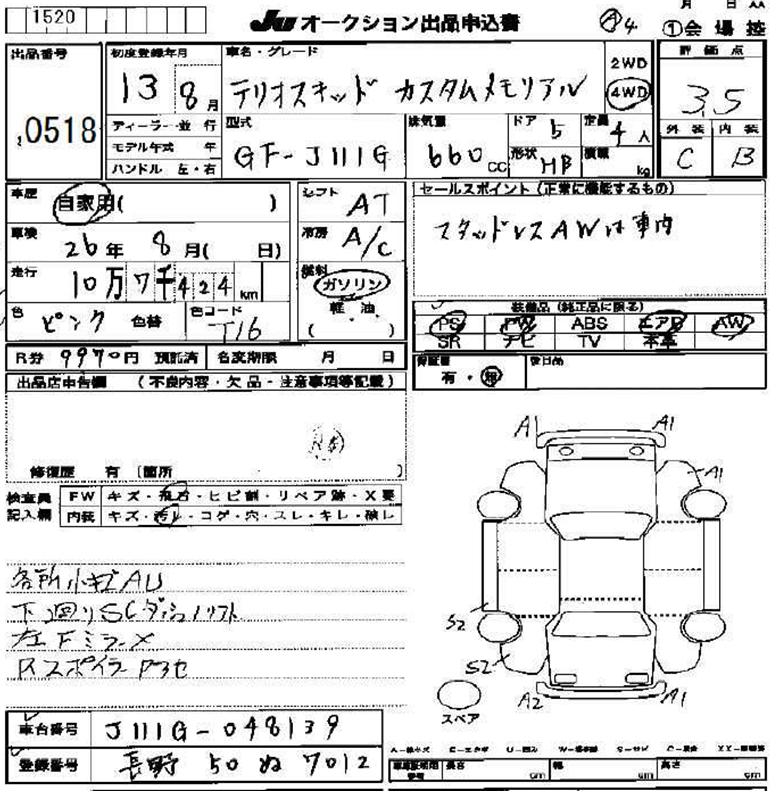 1520
JU オークション出品申込書
A 4
月 日 AA
①会場控
出品番号
0518
初度登録年月
13 8月
車名・グレード
テリオスキッド カスタムメモリアル
2WD
4WD
評価点
3.5
外装 内装
C B
ディーラー・並行
モデル年式 年
ハンドル 左・右
型式
GF-J111G
排気量
660cc
ドア 5
形状 HB
定員 4人
積載 kg
車歴
自家用( )
車検
26年 8月( 日)
走行
10万7千424km
色
ピンク 色替
色コード
T16
シフト
AT
冷房
A/C
燃料
ガソリン
軽油
( )
セールスポイント(正常に機能するもの)
スタッドレスAWは車内
装備品(純正品に限る)
PS PW ABS エアB AW
SR ナビ TV 本革
保証書
有・無
後日品
R券 9970円 預託済 名変期限 月 日
出品店申告欄 (不良内容・欠品・注意事項等記載)
修復歴 有(箇所 )
検査員
記入欄
FW キズ・飛石・ヒビ割・リペア跡・X要
内装 キズ・汚れ・コゲ・穴・スレ・キレ・破レ
各所小キズAU
下廻りSC
左FミラーX
RスポイラーP
A1 A1
A1
S2
S2
A2 A1
スペア
車台番号 J111G-048139
登録番号 長野 50 ぬ 7012
長さ cm 幅 cm 高さ cm